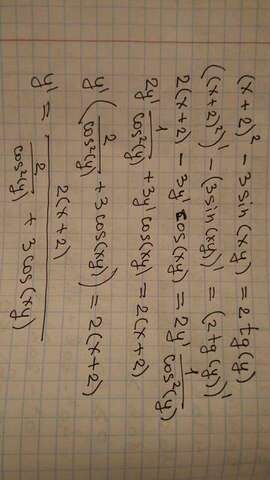 (x+2)² - 3sin(xy) = 2tg(y)
((x+2)²)' - (3sin(xy))' = (2tg(y))'
2(x+2) - 3y' cos(xy) = 2y' 1/cos²(y)
2y' 1/cos²(y) + 3y' cos(xy) = 2(x+2)
y' (2/cos²(y) + 3cos(xy)) = 2(x+2)
y' = 2(x+2) / (2/cos²(y) + 3cos(xy))